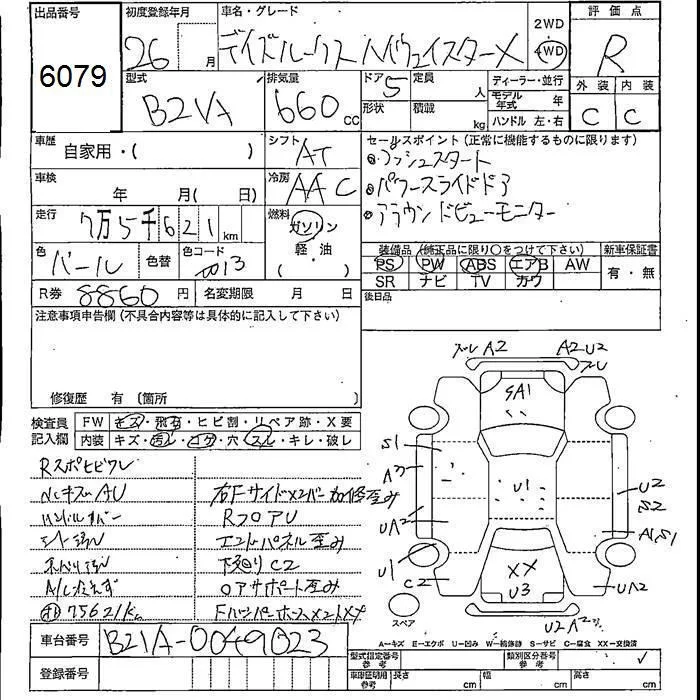 出品番号
6079
初度登録年月
26 月
車名・グレード
デイズルークス ハイウェイスターX
2WD
4WD
評価点
R
型式
B21A
排気量
660 cc
ドア 5
形状
定員 人
積載 kg
ディーラー・並行
モデル年式 年
ハンドル 左・右
外装 内装
C C
車歴
自家用・( )
シフト
AT
セールスポイント(正常に機能するものに限ります)
プッシュスタート
パワースライドドア
アラウンドビューモニター
車検
年 月( 日)
冷房
AAC
走行
7万5千621km
燃料
ガソリン
軽・油
( )
色
パール
色替
色コード
装備品(純正品に限り〇をつけて下さい)
新車保証書
PS PW ABS エアB AW
SR ナビ TV カワ
有・無
R券 8860円
名変期限 月 日
後日品
注意事項申告欄(不具合内容等は具体的に記入して下さい)
修復歴 有〔箇所
検査員記入欄
FW キズ・飛石・ヒビ割・リペア跡・X要
内装 キズ・汚レ・コゲ・穴・スレ・キレ・破レ
Rスポヒビワレ
NCキズAU
ハンドルカバー
シート汚
右FサイドメンバーX加修歪み
RフロアU
エンドパネル歪み
下廻りC2
ロアサポート歪み
75621km
車台番号 B21A-0049023
登録番号
ズレ A2
A2 U2
ズレ
SA1
S1
U1
U2
S2
UA2
A1S1
U1
C2
XX
U3
UA2
U2
スペア
A=キズ E=エクボ U=凹み W=補修跡 S=サビ C=腐食 XX=交換済
型式指定番号
参考
類別区分番号
参考
車庫証明用
参考
長さ cm 幅 cm 高さ cm